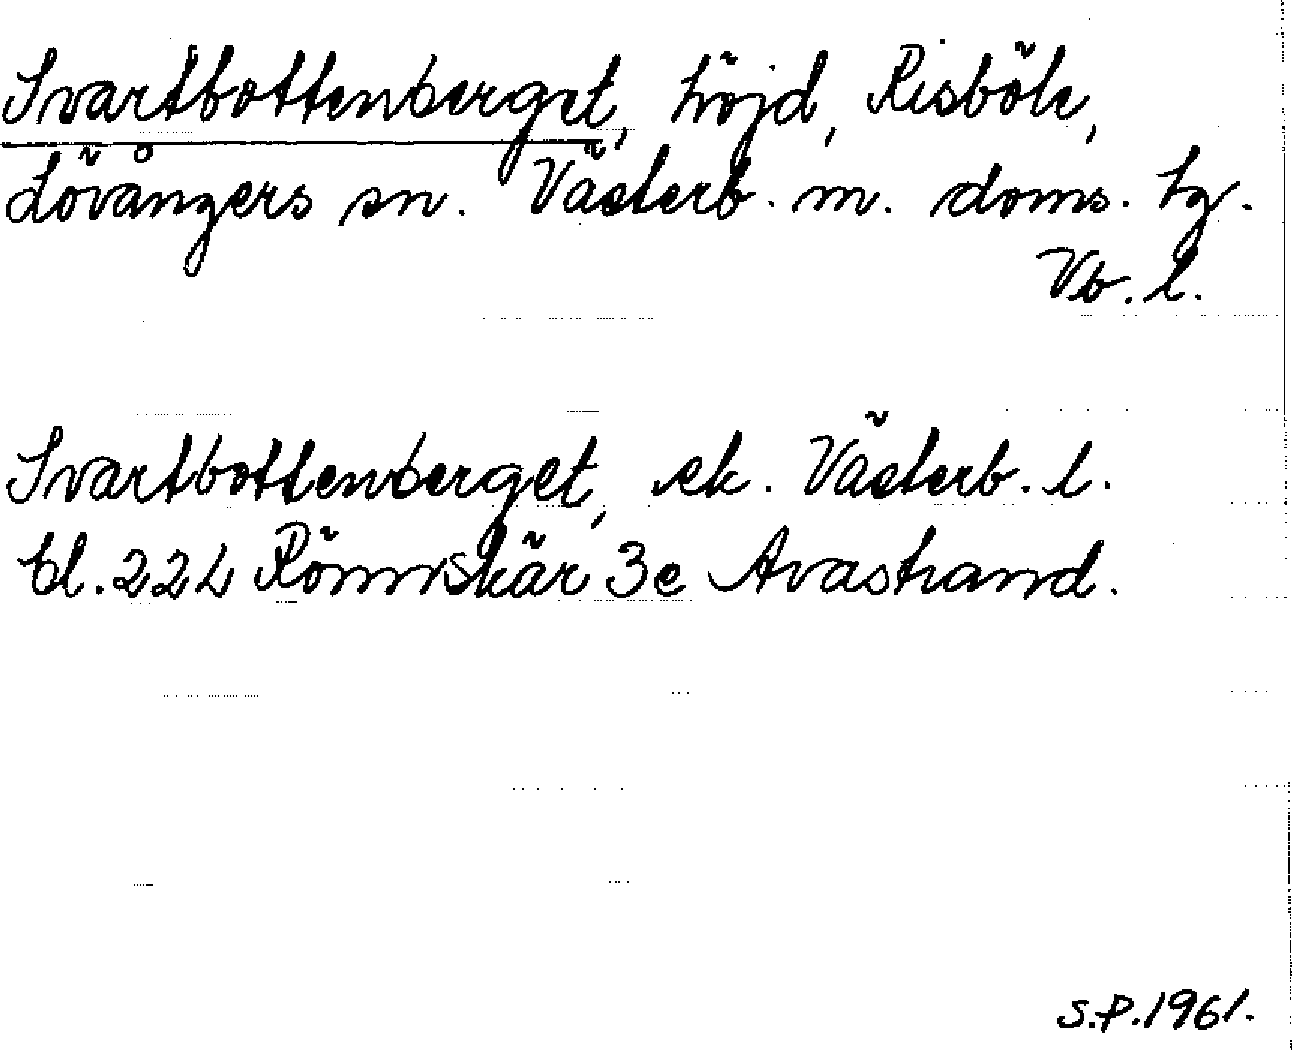 Svartbottenberget, höjd, Risböle,
Lövångers sn. Västerb. m. doms. hg.
Vb. l.
Svartbottenberget, ek. Västerb. l.
bl. 22L Rönnskär 3e Avastrand.
S.P. 1961.